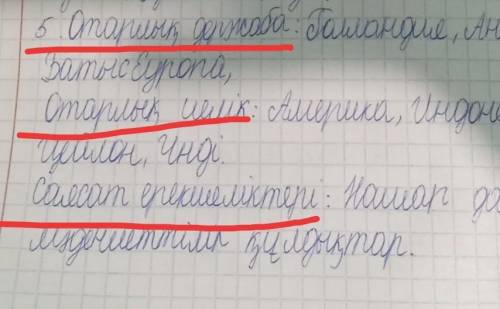 5. Отарлық держава: Голландия, Ан
Батыс Еуропа,
Отарлық иелік: Америка, Индоне
Цейлон, Үнді.
Саясат ерекшеліктері: Нашар да
мәдениеттілік құлдықтар.